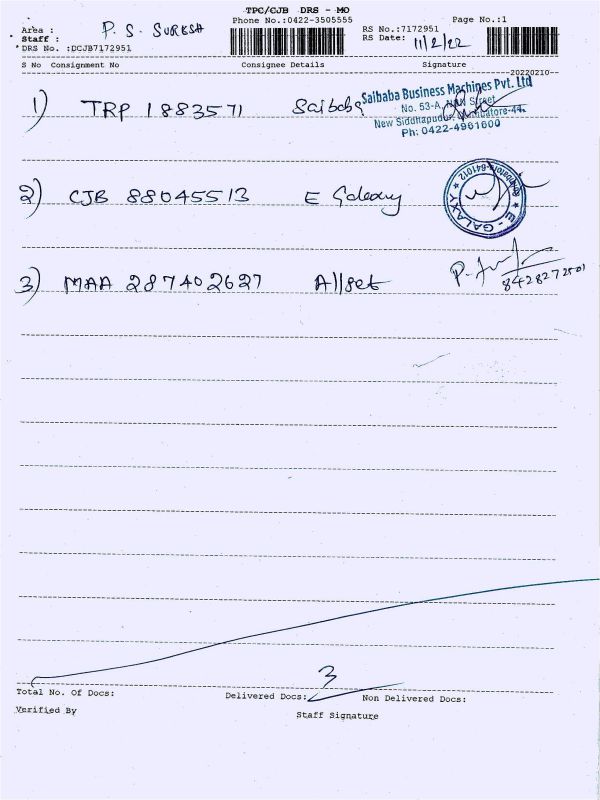 TPC/CJB DRS - MO
Phone No.:0422-3505555 Page No.:1
Area : P. S. SURESH RS No.:7172951
Staff : RS Date: 11/2/22
DRS No. :DCJB7172951
S No Consignment No Consignee Details Signature
20220210
1) TRP 1883571 Saibaba
Saibaba Business Machines Pvt. Ltd
No. 53-A, Street
New Siddhapudur, Coimbatore-44.
Ph: 0422-4961600
2) CJB 88045513 E Galaxy
★ E - GALAXY ★ Coimbatore-641012
3) MAA 287402627 Allset
8428272501
3
Total No. Of Docs: Delivered Docs: Non Delivered Docs:
Verified By Staff Signature